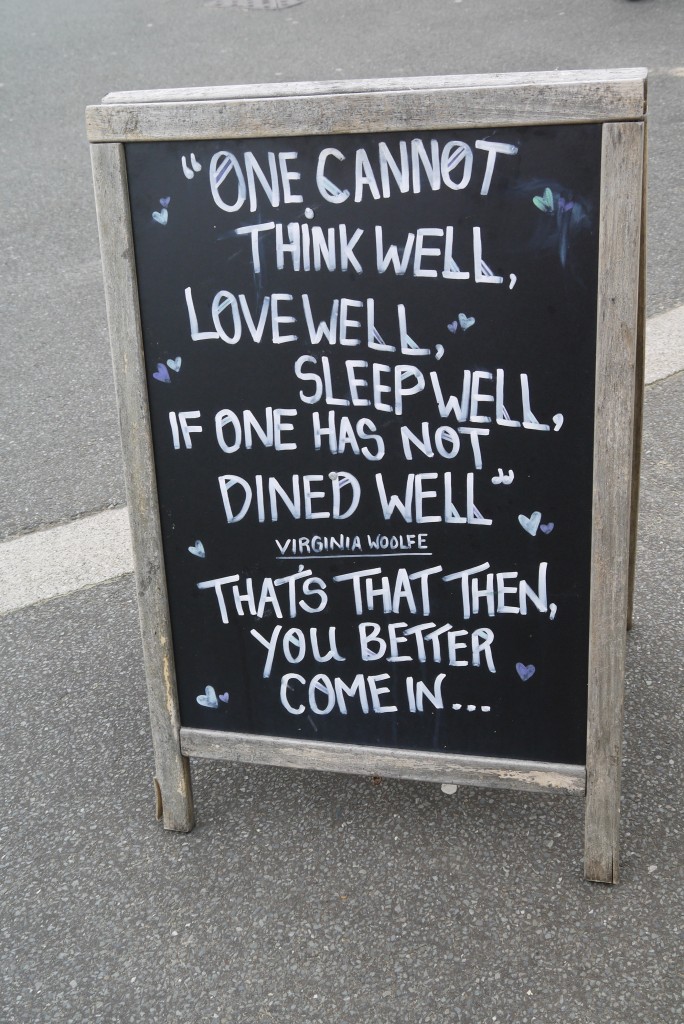 "ONE CANNOT
THINK WELL,
LOVE WELL,
SLEEP WELL,
IF ONE HAS NOT
DINED WELL"
VIRGINIA WOOLFE
THAT'S THAT THEN,
YOU BETTER
COME IN...